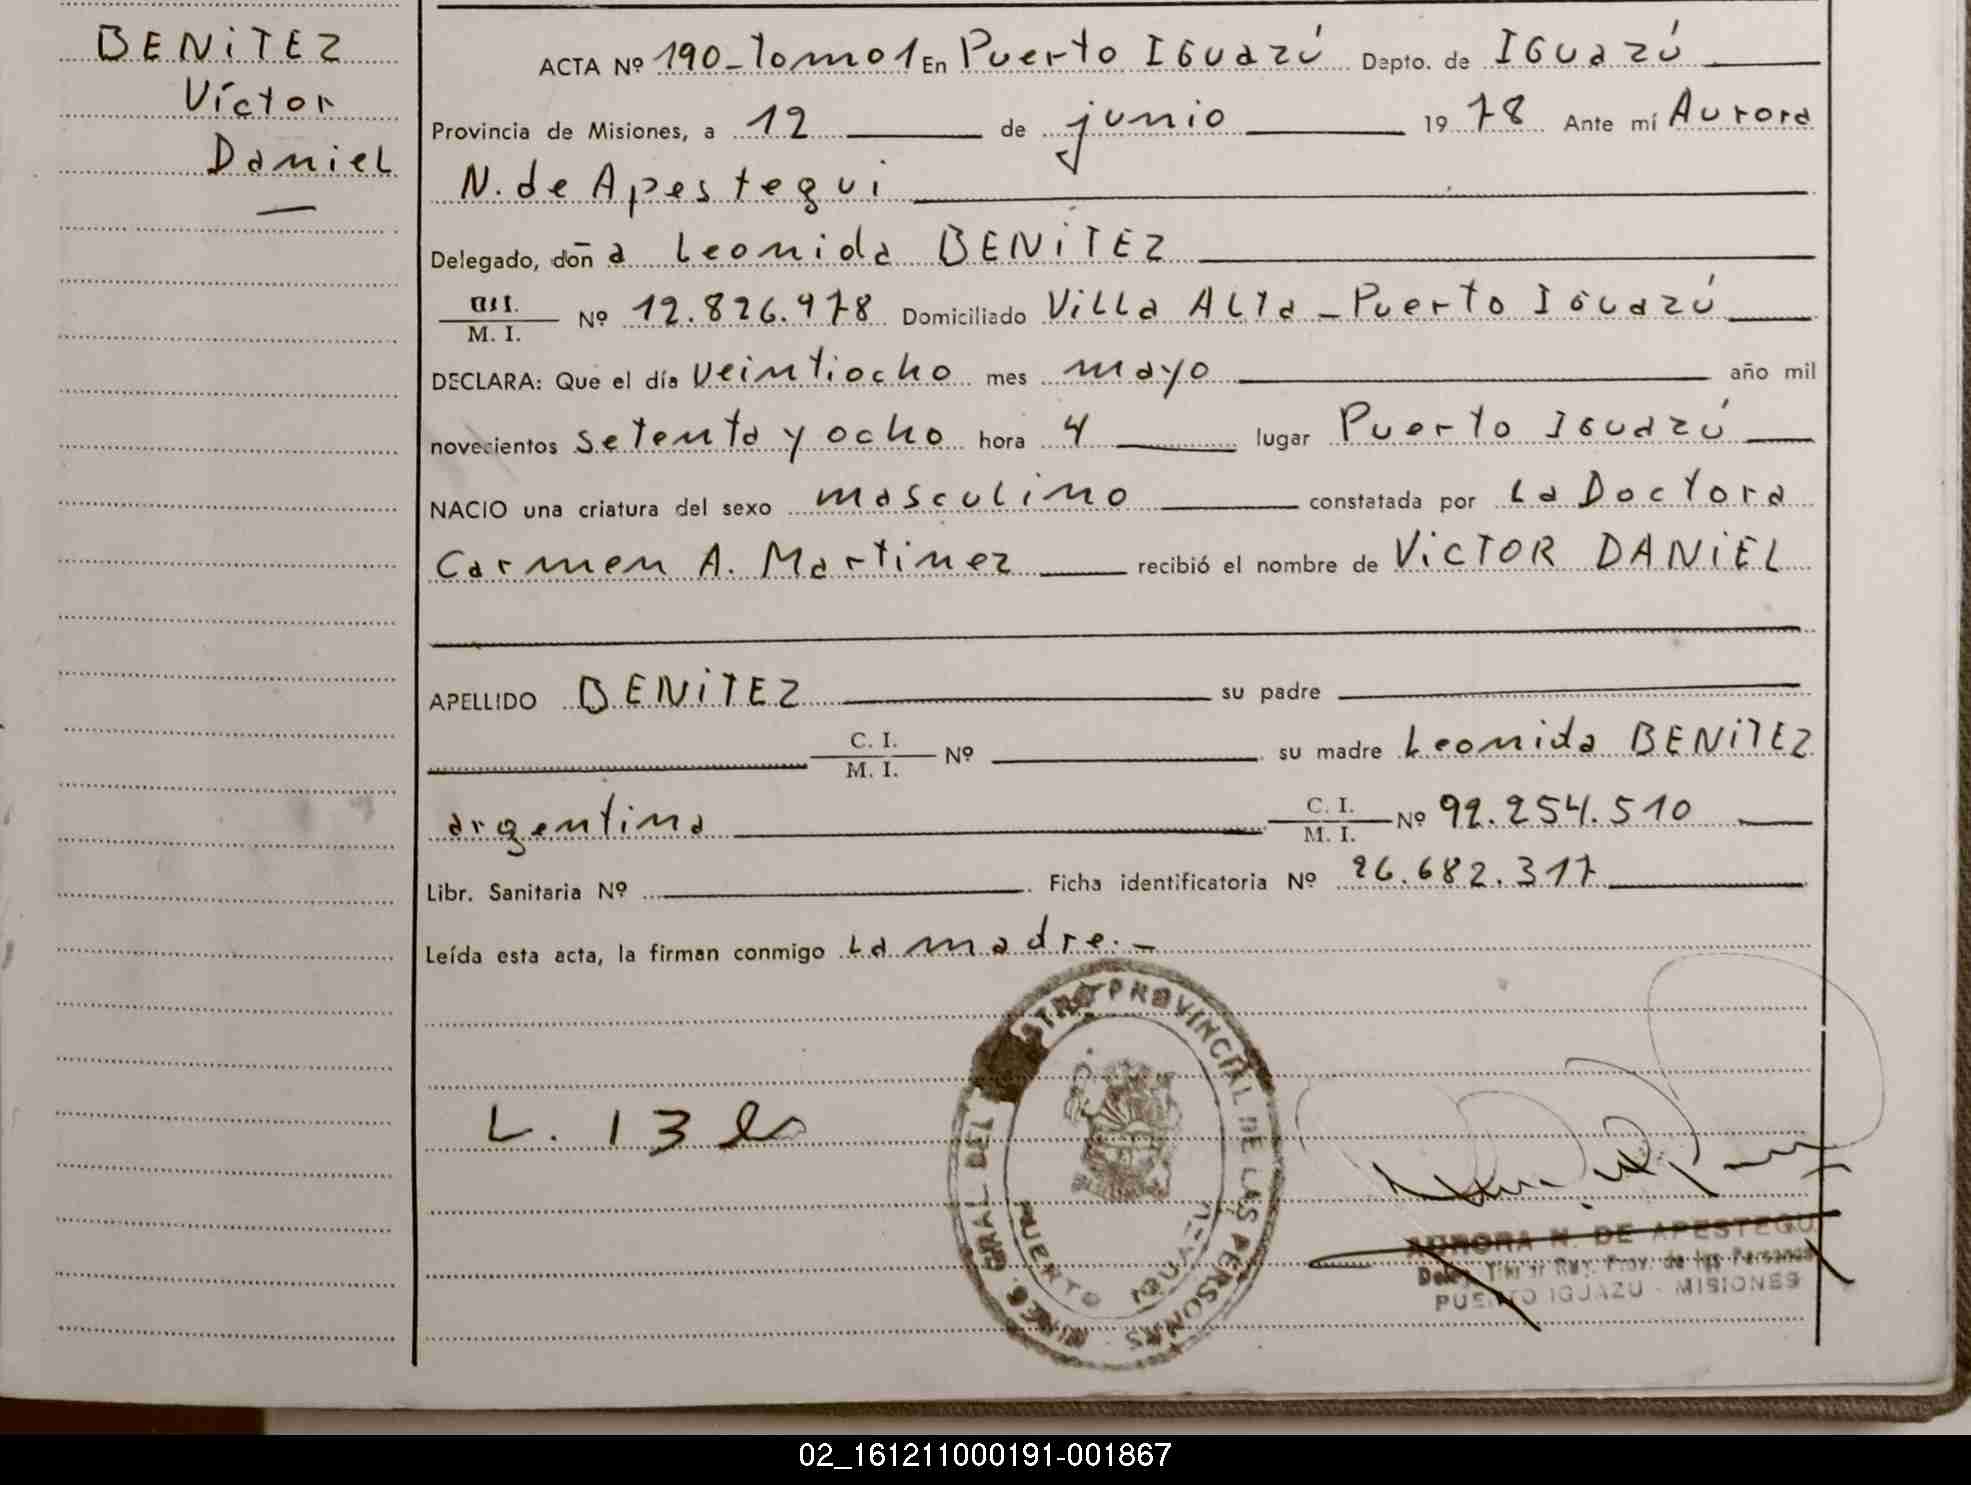 BENiTEZ
Víctor
Daniel
ACTA Nº 190-Tomo 1 En Puerto IGuazú Depto. de IGuazú
Provincia de Misiones, a 12 de junio 1978 Ante mí Aurora
N. de Apestegui
Delegado, doña Leonida BENiTEZ
M. I. Nº 12.826.978 Domiciliado Villa Alta - Puerto IGuazú
DECLARA: Que el día veintiocho mes mayo año mil
novecientos setenta y ocho hora 4 lugar Puerto IGuazú
NACIO una criatura del sexo masculino constatada por La Doctora
Carmen A. Martinez recibió el nombre de ViCTOR DANiEL
APELLIDO BENiTEZ su padre
C. I.
M. I. Nº su madre Leonida BENiTEZ
argentina C. I.
M. I. Nº 92.254.510
Libr. Sanitaria Nº Ficha identificatoria Nº 26.682.317
Leída esta acta, la firman conmigo la madre.-
L. 13
GRAL. DEL PROVINCIAL DE LAS PERSONAS
PUERTO
AURORA N. DE APESTEGUI
Prov. de las Personas
PUERTO IGUAZU - MISIONES
02_161211000191-001867